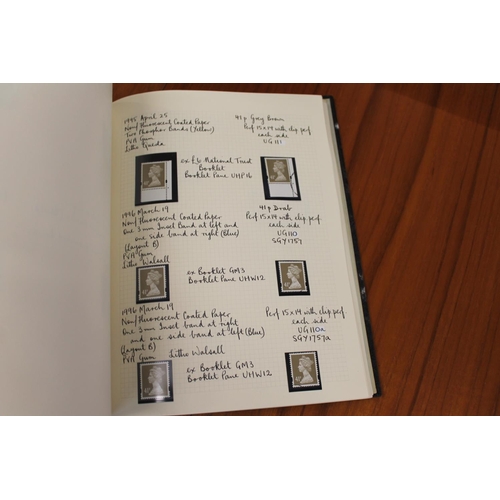 1995 April 25
41p Grey Brown
Non/Fluorescent Coated Paper
Perf 15x14 with elip. perf
Two Phosphor Bands (Yellow)
each side
PVA Gum
UG 111
Litho Questa
ex £6 National Trust
Booklet
Booklet Pane UHP16
1996 March 19
41p Drab
Non/Fluorescent Coated Paper
Perf 15x14 with elip. perf
One 3mm Inset Band at left and
each side
one side band at right (Blue)
UG110
(Layout B)
SGY1757
PVA Gum
Litho Walsall
ex Booklet GM3
Booklet Pane UHW12
1996 March 19
Perf 15x14 with elip. perf.
Non/Fluorescent Coated Paper
each side
One 3mm Inset Band at right
UG110a
and one side band at left (Blue)
SGY1757a
(Layout B)
PVA Gum
Litho Walsall
ex Booklet GM3
Booklet Pane UHW12